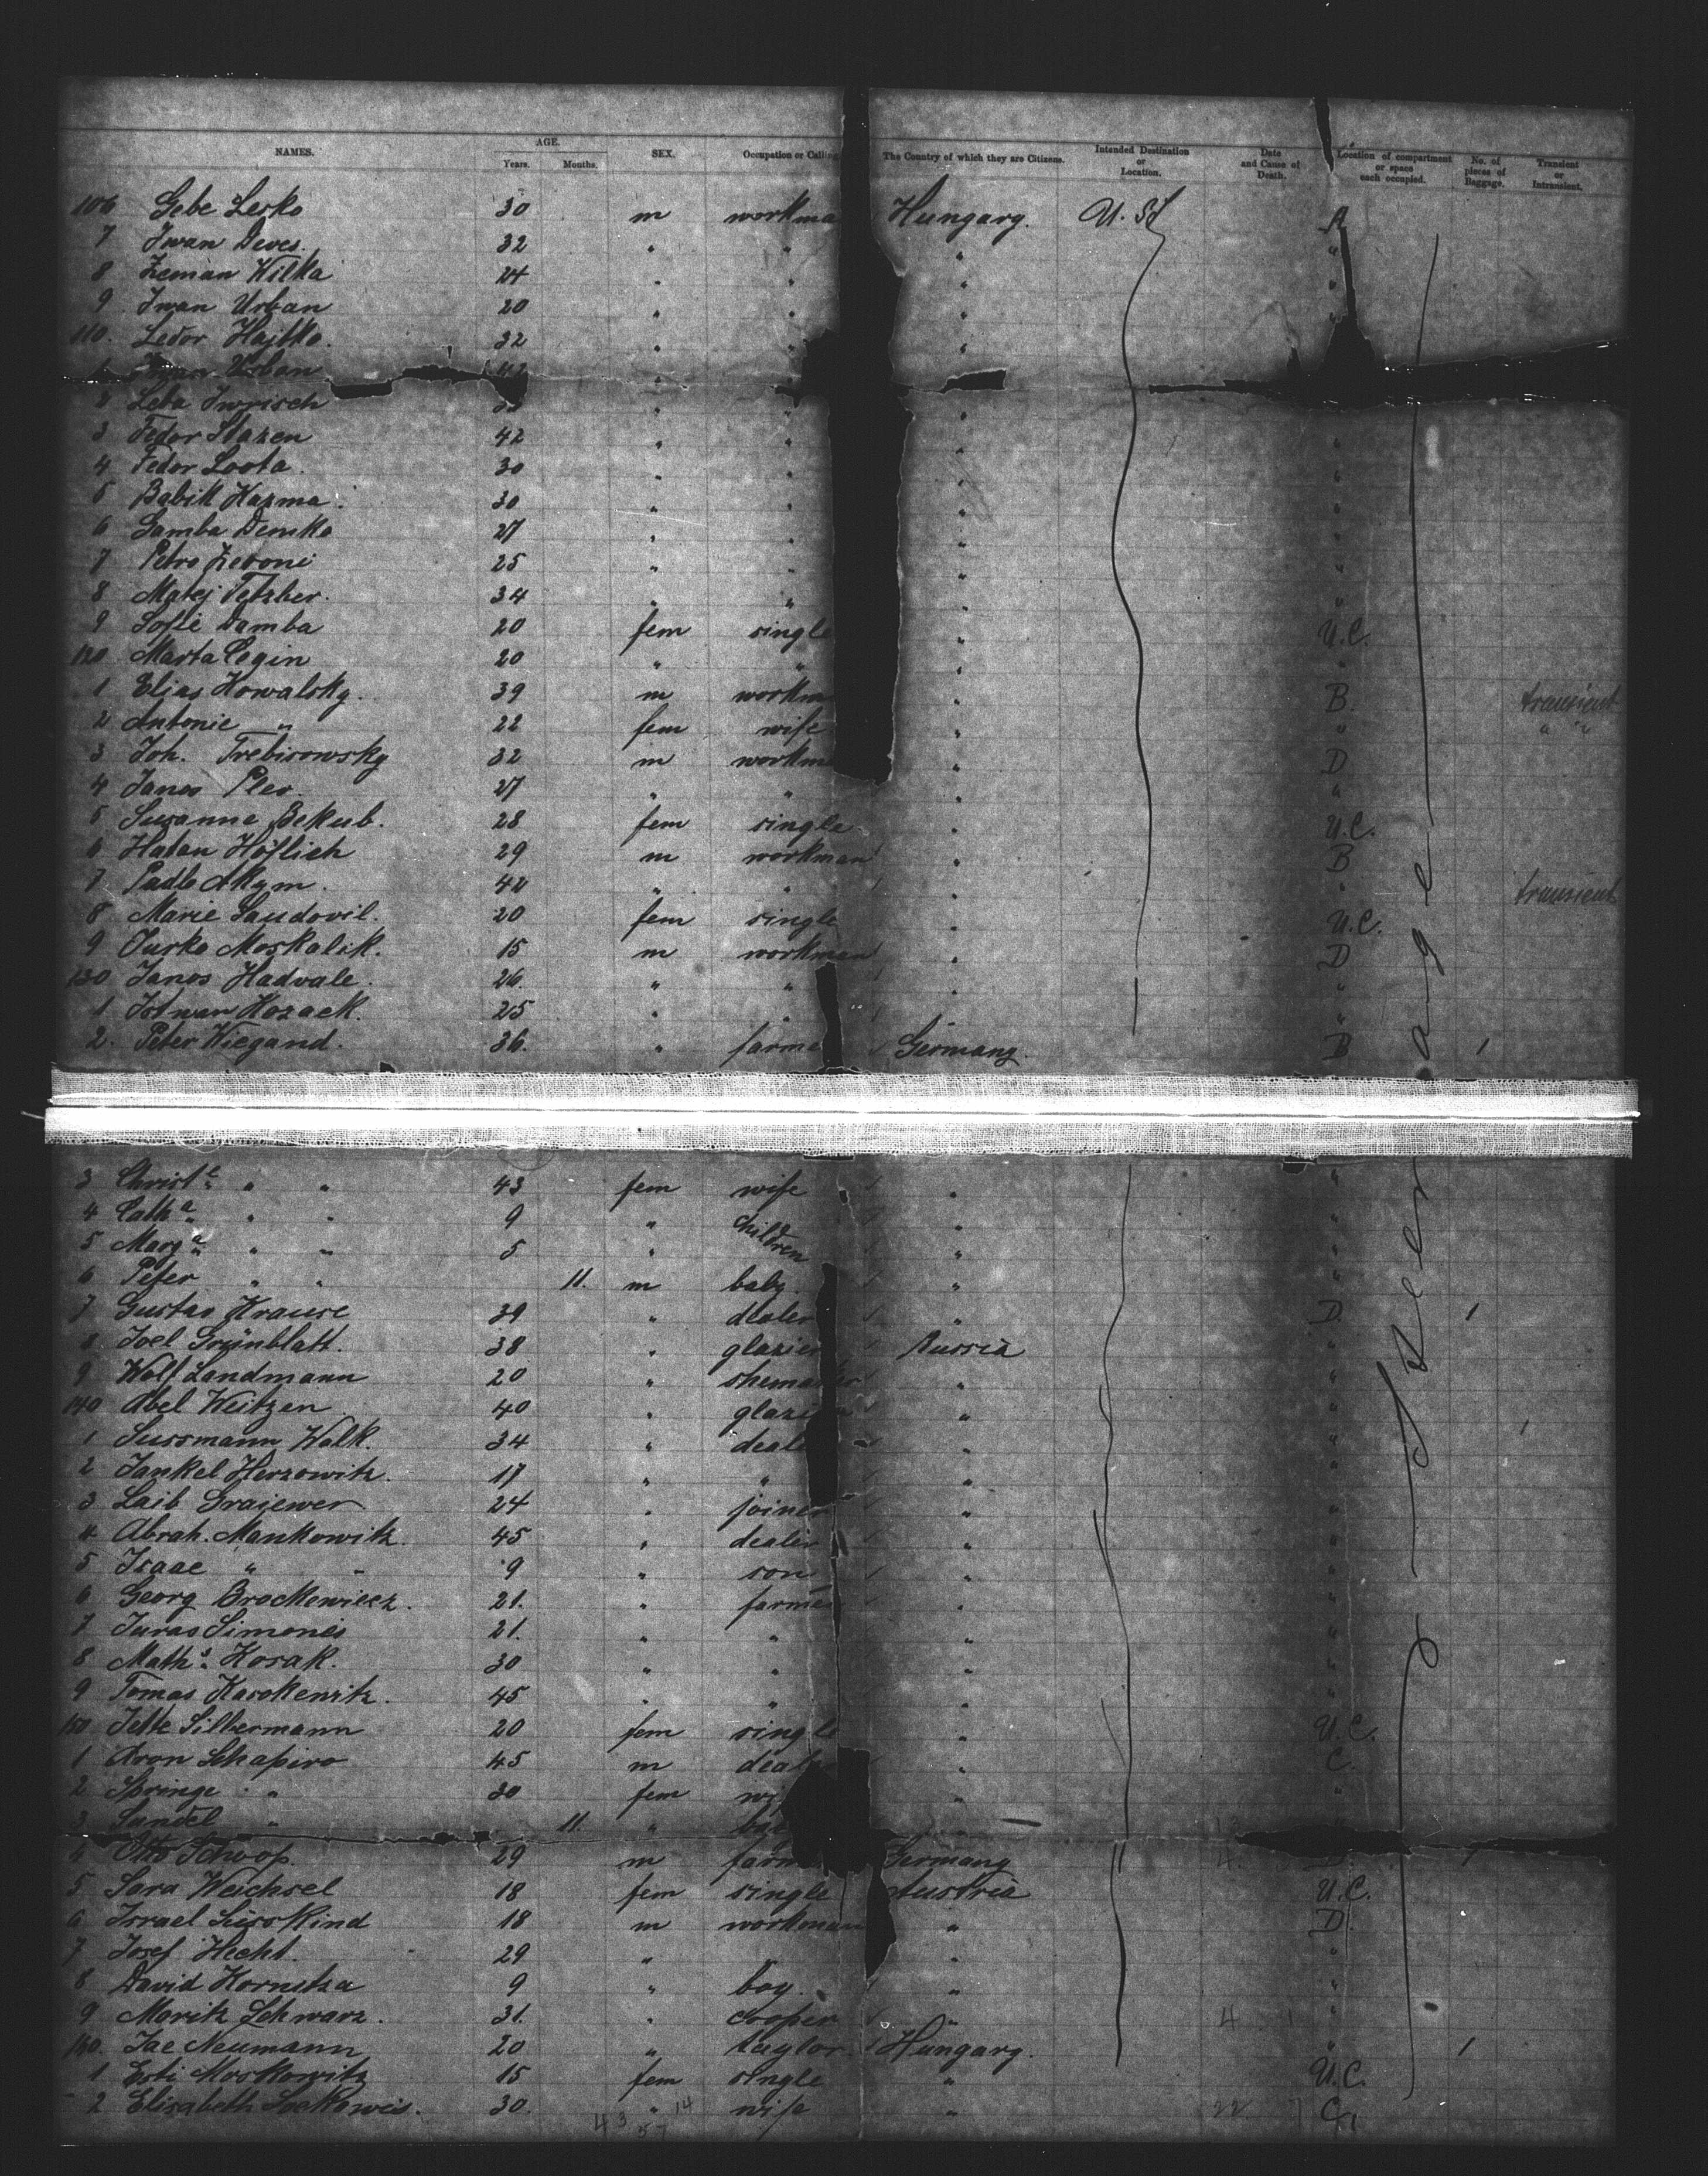 NAMES. AGE. Years. Months. SEX. Occupation or Calling The Country of which they are Citizens. Intended Destination or Location. Date and Cause of Death. Location of compartment or space each occupied. No. of pieces of Baggage. Transient or Intransient.
106 Gebe Lesko 30 m workma Hungary. U. St A
7 Iwan Deves. 32 " " " "
8 Zeman Wilka 24 " " " "
9 Iwan Urban 20 " " " "
110. Ledor Hajtko. 32 " " "
1 Urban 42 "
2 Leba Iwrisch " " "
3 Fedor Stazen 42 " " " "
4 Fedor Loota. 30 " " " "
5 Babik Kazma. 30 " " " "
6 Samba Demko 27 " " " "
7 Petro Zeroni 25 " " " "
8 Matej Tetzber. 34 " " " "
9 Sofie Damba 20 fem single " U.C.
120 Marta Cegin 20 " " " "
1 Elias Kowalsky. 39 m workm " B. transient
2 Antonie " 22 fem wife " " " "
3 Joh. Trebisowsky 32 m workm " D
4 Janos Ples. 27 " " " "
5 Susanne Bekub. 28 fem single " U.C.
6 Hatan Höflich 29 m workman " B
7 Padlo Akym. 42 " " " " transient
8 Marie Saudovil. 20 fem single " U.C.
9 Jurko Moskalik. 15 m workman " D
130 Janos Hadvale. 26. " " " "
1 Istwan Kozack. 25 " " " "
2. Peter Wiegand. 36. " farme Germany. B 1
3 Christe " " 43 fem wife " "
4 Catha " " 9 " children " "
5 Marga " " 5 " " "
6 Peter " " 11. m baby. " "
7 Gustav Krause 39 " dealer " D. 1
8 Joel Grünblatt. 38 " glazier Russia "
9 Wolf Landmann 20 " shemaker " "
140 Abel Weitzen 40 " glazi " "
1 Sussmann Wolk. 34 " deale " "
2 Jankel Herzowitz. 17 " " " "
3 Laib Grajewer 24 " joiner " "
4 Abrah. Mankowitz. 45 " dealer " "
5 Isaac " " 9 " son " "
6 Georg Brockewiecz. 21. " farmer " "
7 Juras Simones 21. " " " "
8 Maths. Kosak. 30 " " " "
9 Tomas Kasokewitz. 45 " " " "
150 Jette Silbermann 20 fem single " U.C.
1 Aron Schapiro 45 m deale " C.
2 Springe " 30 fem wi " "
3 Sundel " 11. " ba " "
4 Otto Schoop. 29 m farm Germany D. 1
5 Sara Weichsel 18 fem single Austria U.C.
6 Israel Süsskind 18 m workman " D.
7 Josef Hecht. 29 " " "
8 David Kornitza 9 " boy. " "
9 Moritz Schwarz. 31. " cooper " "
160. Jac Neumann 20 " taylor Hungary. " 1
1 Esti Moskowitz 15 fem single " U.C.
2 Elisabeth Sockoweis. 30. " wife " C.
43 57 14 22
Steerage